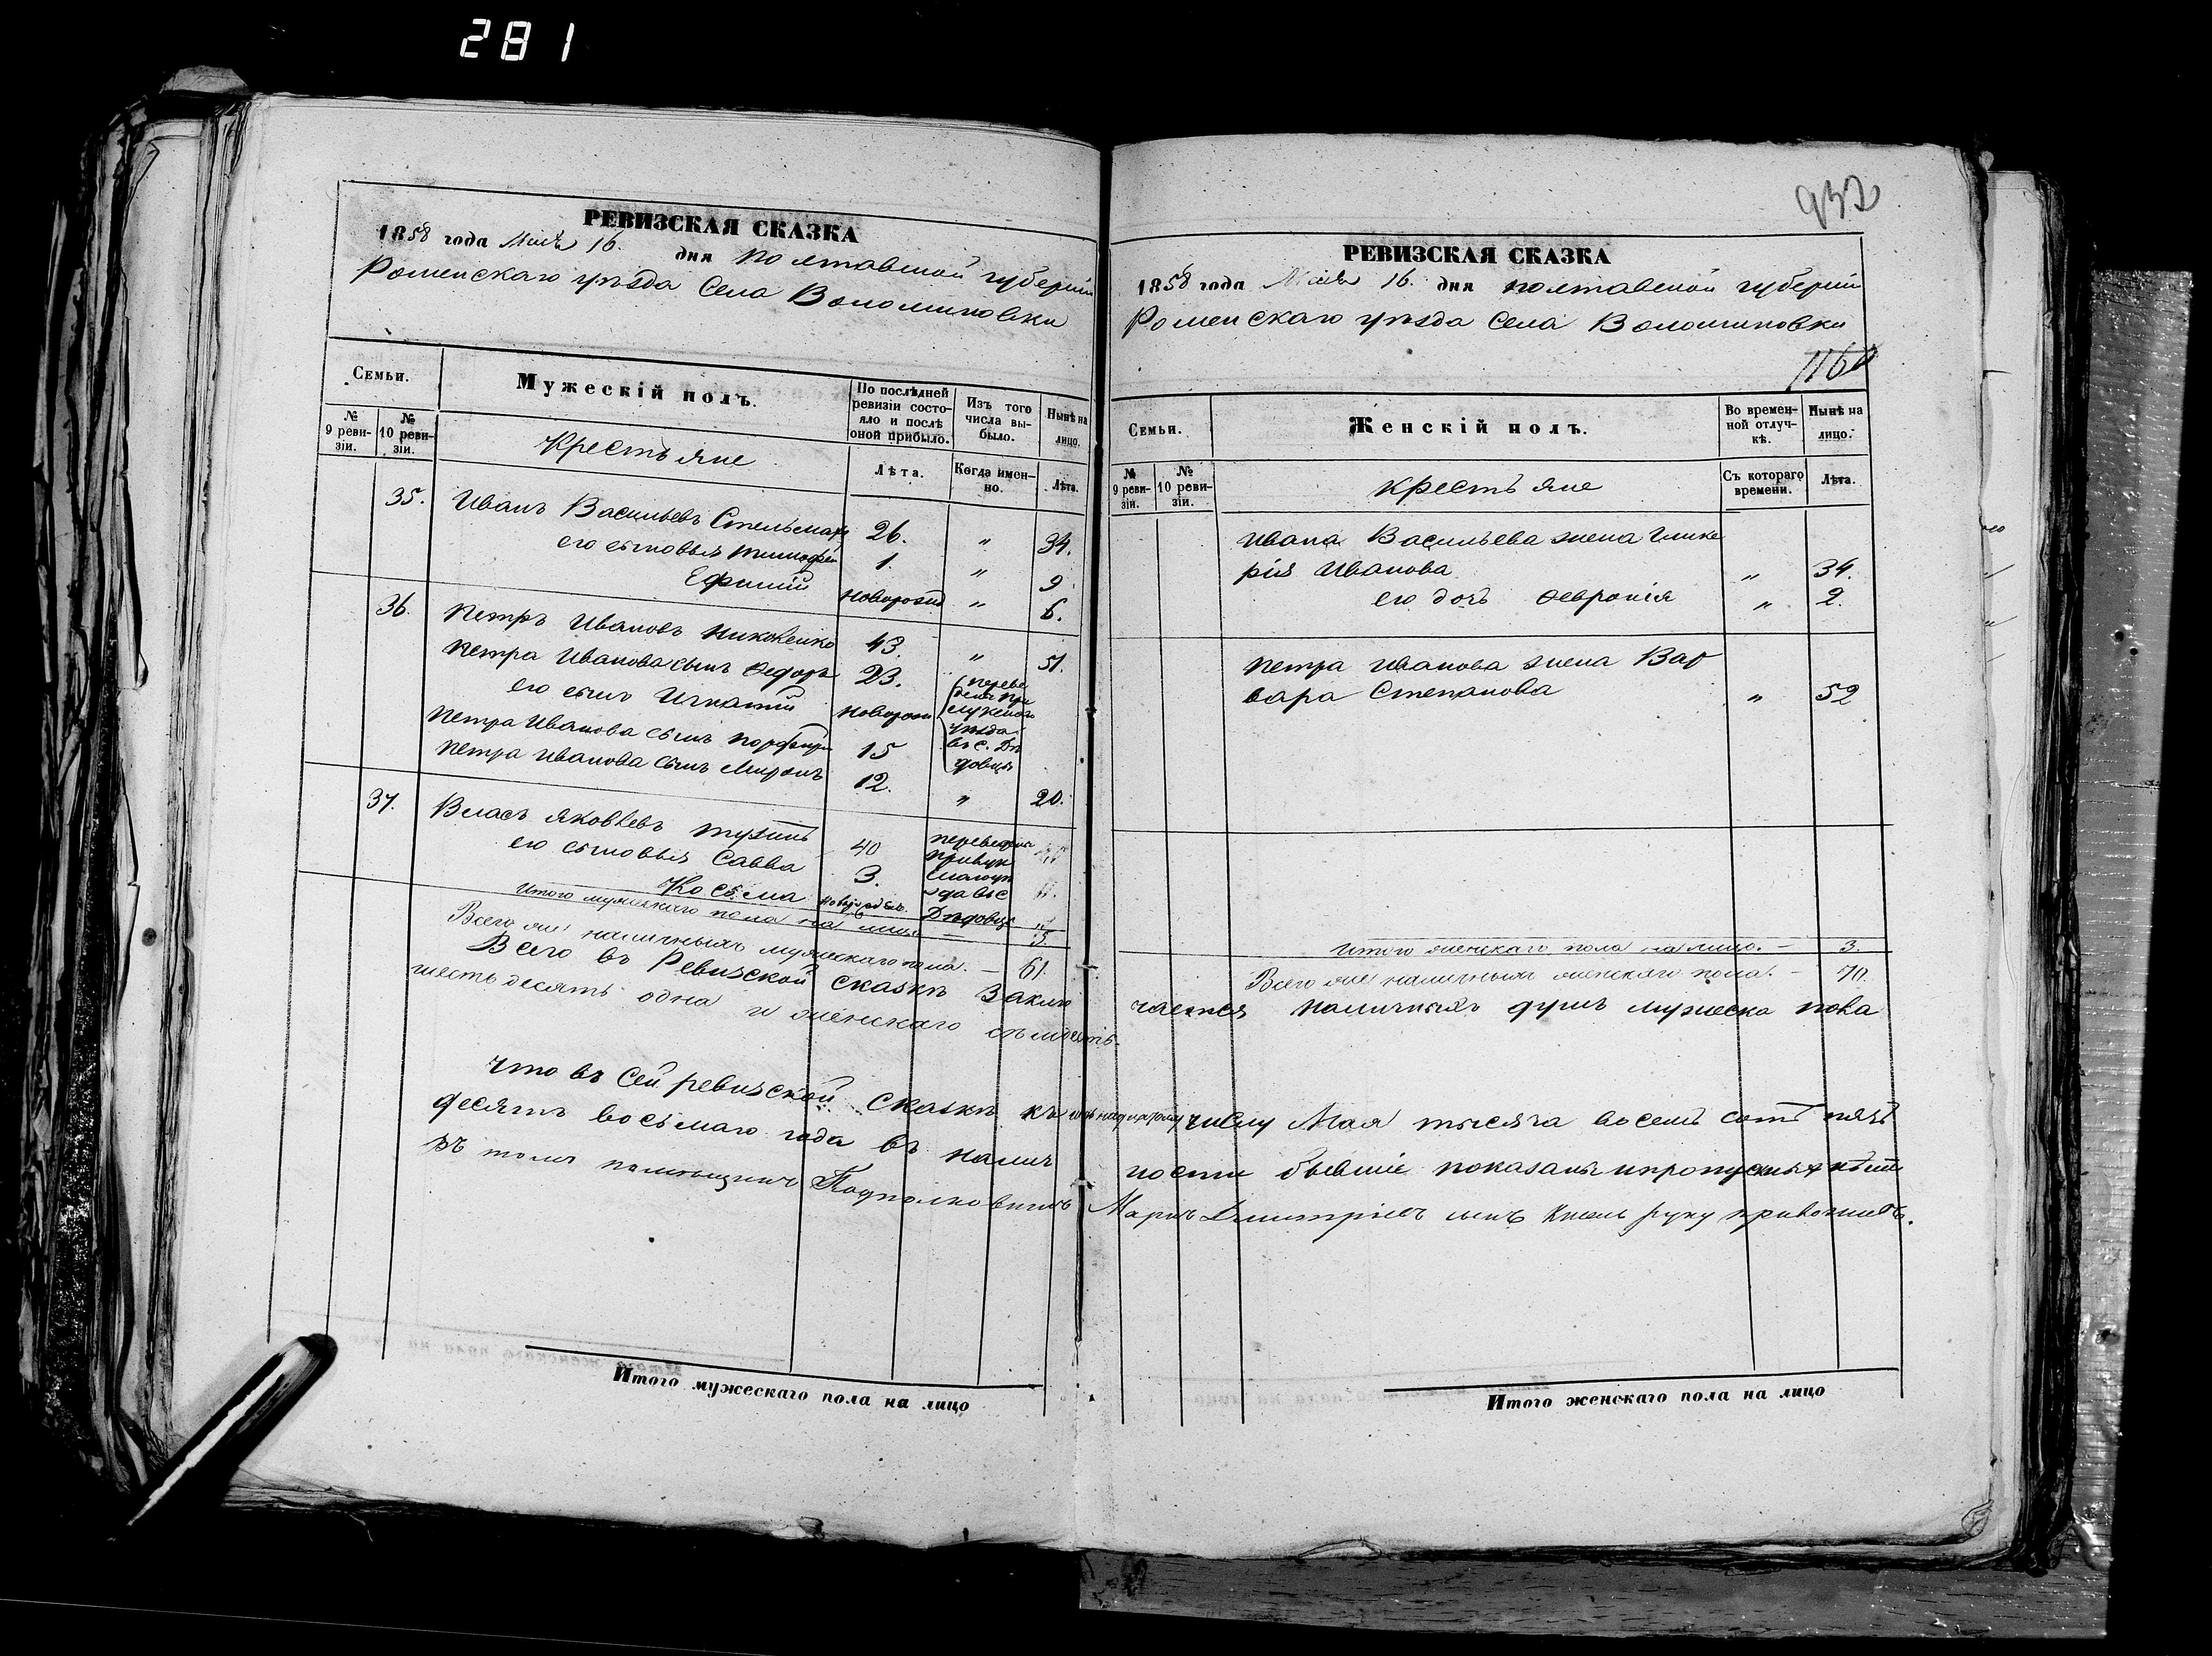 281
РЕВИЗСКАЯ СКАЗКА
1858 года Мая 16. дня Полтавской губерніи
Роменскаго уѣзда Села Волошиновки
Семьи.
Мужескій полъ.
По послѣдней ревизіи состояло и послѣ оной прибыло.
Изъ того числа выбыло.
Нынѣ на лицо.
№ 9 ревизіи.
№ 10 ревизіи.
Крестьяне
Лѣта.
Когда именно.
Лѣта.
35. Иванъ Васильевъ Стельмахъ 26. " 34.
его сыновья Тимофей 1. " 9
Ефимій новорожд " 6.
36. Петръ Ивановъ 43. " 51.
Петра Иванова сынъ Ѳедоръ 23.
его сынъ Игнатій новорож
Петра Иванова сынъ Порфирій 15
переведены При
лукскаго
уѣзда
въ с. Дѣ
довцы
Петра Иванова сынъ Миронъ 12. " 20.
37. Власъ Яковлевъ 40
его сыновья Савва 3.
Косьма новорожден.
переведены
Прилук
скаго уѣ
зда въ с
Дѣдовцы
Итого мужескаго пола на лицо — 5
Всего же наличныхъ мужескаго пола. — 61.
Всего въ Ревизской сказкѣ Заклю
шестьдесятъ одна и женскаго семьдесятъ
что въ сей ревизской сказкѣ къ шестнадцатому
десятъ восьмаго года въ налич
въ томъ помѣщикъ Подполковникъ
Итого мужескаго пола на лицо
932
РЕВИЗСКАЯ СКАЗКА
1858 года Мая 16. дня Полтавской губерніи
Роменскаго уѣзда Села Волошиновки
Семьи.
Женскій полъ.
Во временной отлучкѣ.
Нынѣ на лицо.
№ 9 ревизіи.
№ 10 ревизіи.
Крестьяне
Съ котораго времени.
Лѣта.
Ивана Васильева жена Глике
рія Иванова " 34.
его дочь Февронія " 2.
Петра Иванова жена Вар
вара Степанова " 52
Итого женскаго пола на лицо. — 3.
Всего же наличныхъ женскаго пола. — 70.
чается наличныхъ душъ мужеска пола
числу Мая тысяча восемь сотъ пять
ности бывшіе показаны и пропускныхъ нѣтъ
Дмитріевъ сынъ руку приложилъ.
Итого женскаго пола на лицо